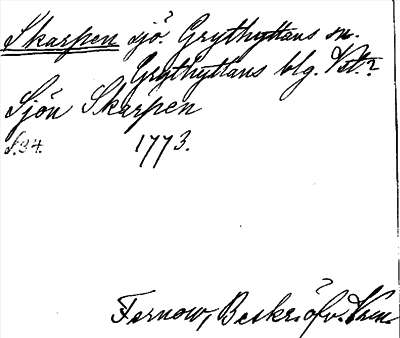 Skarpen sjö? Grythyttans sn.
Grythyttans blg. Vstl.?
Sjön Skarpen
s. 34. 1773.
Fernow, Beskr. öfv. Värml.